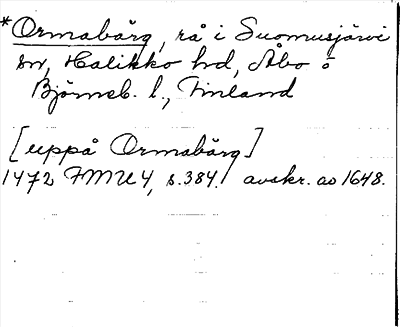 *Ormabärg, rå i Suomusjärvi
sn, Halikko hd, Åbo o
Björneb. l., Finland
[uppå Ormabärg]
1472 FMU 4, s. 384. avskr. ao 1648.